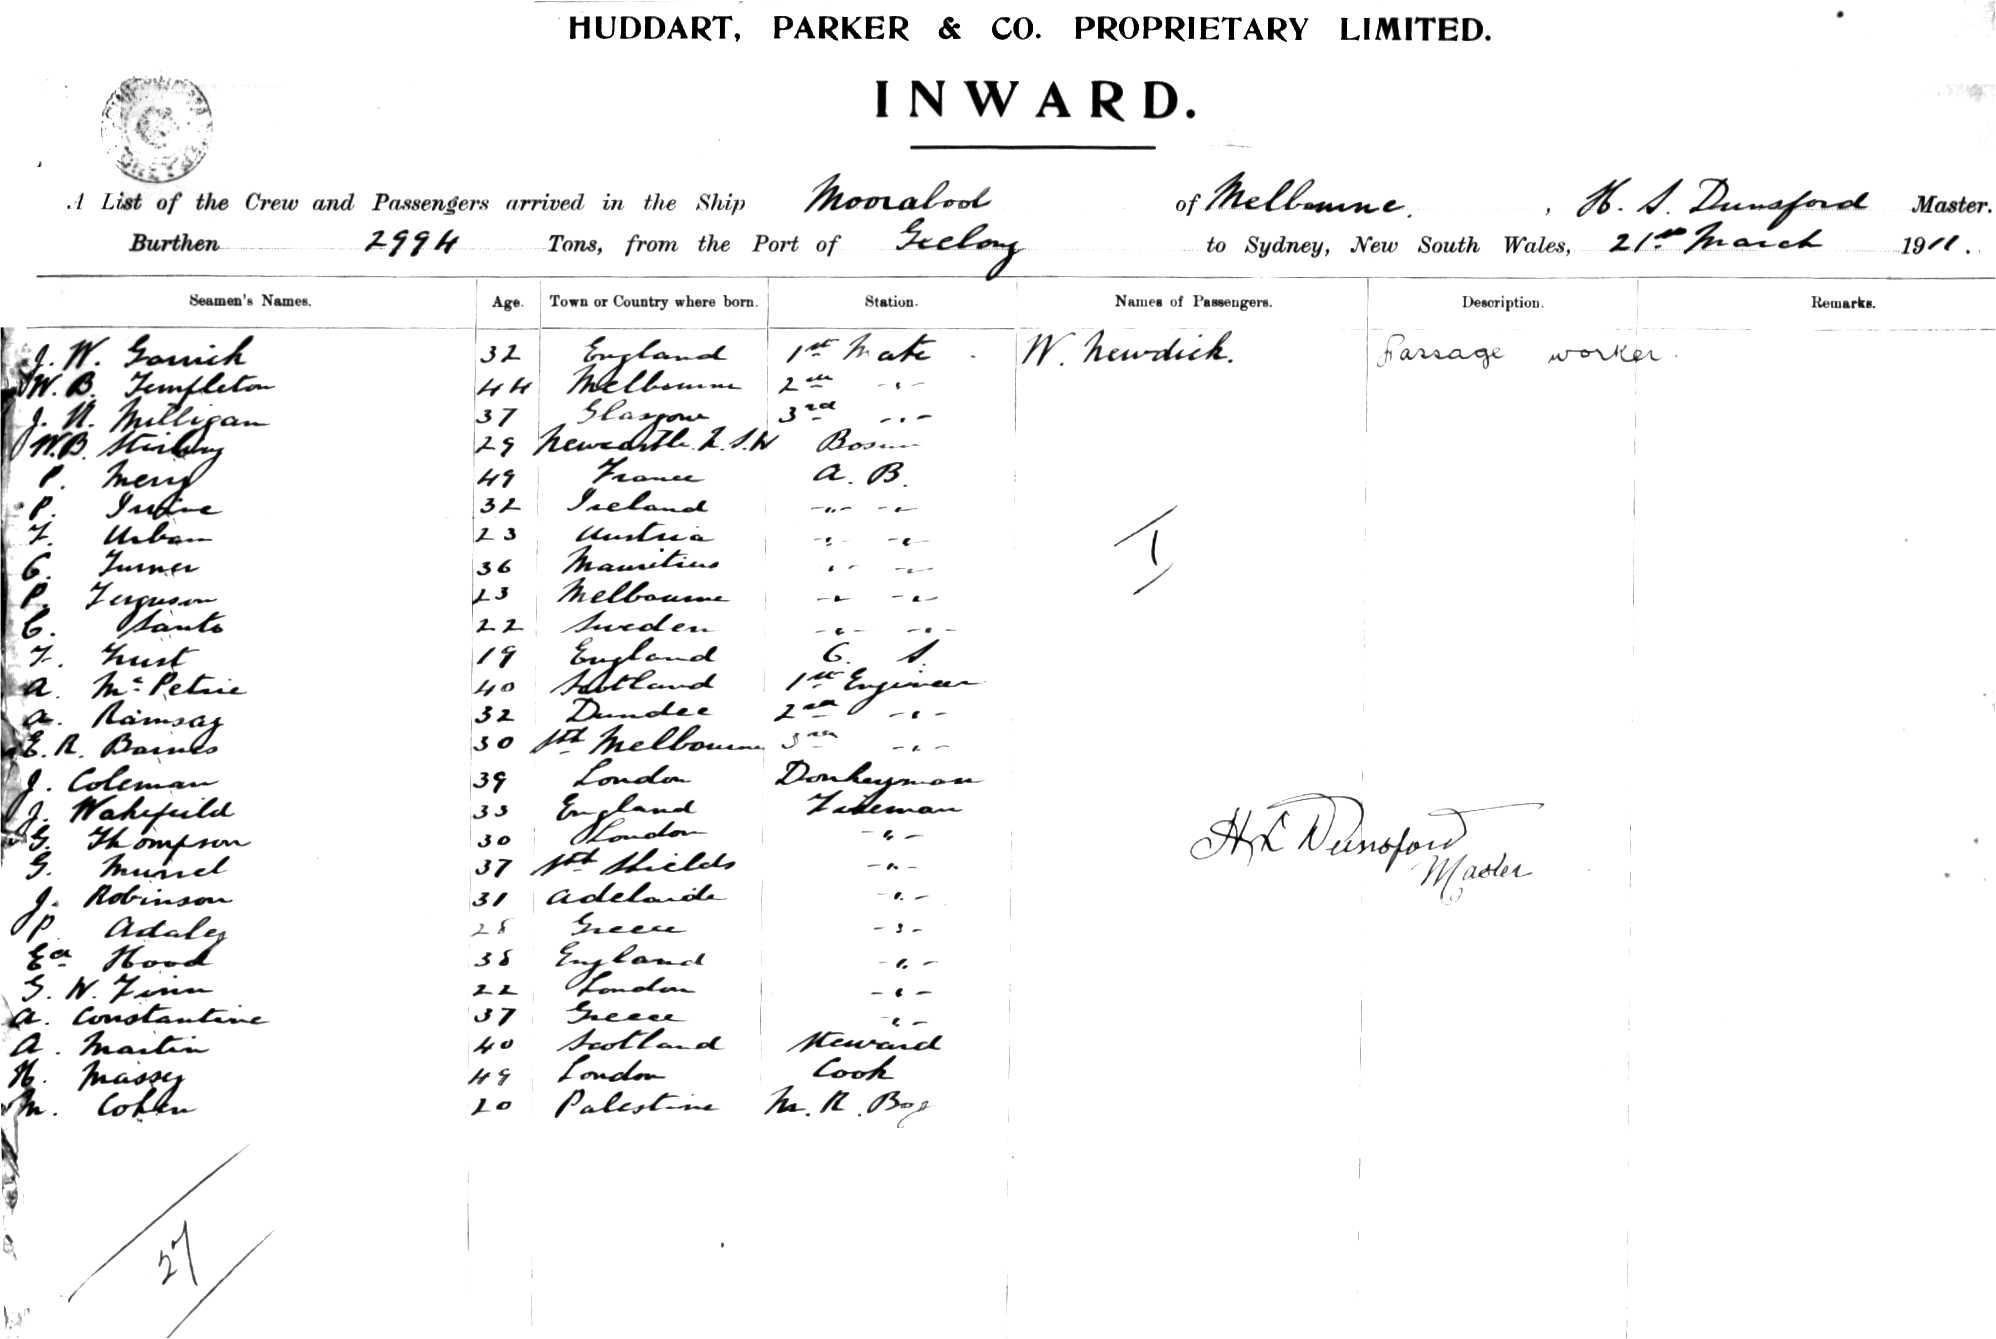 HUDDART, PARKER & CO. PROPRIETARY LIMITED.
INWARD.
A List of the Crew and Passengers arrived in the Ship Moorabool of Melbourne. , H. S. Dunsford Master.
Burthen 2994 Tons, from the Port of Geelong to Sydney, New South Wales, 21st March 1911.
Seamen's Names. Age. Town or Country where born. Station. Names of Passengers. Description. Remarks.
J. W. Garrick 32 England 1st Mate W. Newdick. Passage worker.
W. B. Templeton 44 Melbourne 2nd -"-
J. N. Milligan 37 Glasgow 3rd -"-
W. B. Stirling 29 Newcastle N.S.W Bosun
P. Merry 49 France A. B.
P. Irvine 32 Ireland -"- -"-
F. Urban 23 Austria -"- -"-
C. Turner 36 Mauritius -"- -"-
P. Ferguson 23 Melbourne -"- -"-
C. Santo 22 Sweden -"- -"-
F. Trust 19 England O. S.
A. McPetrie 40 Scotland 1st Engineer
A. Ramsay 32 Dundee 2nd -"-
E. R. Barnes 30 Sth Melbourne 3rd -"-
J. Coleman 39 London Donkeyman
J. Wakefield 33 England Fireman
G. Thompson 30 London -"-
G. 37 Sth Shields -"-
J. Robinson 31 Adelaide -"-
P. Adaley 28 Greece -"-
Ed Hood 38 England -"-
G. W. Finn 22 London -"-
A. Constantine 37 Greece -"-
A. Martin 40 Scotland Steward
H. Massey 49 London Cook
M. Cohen 20 Palestine M. R. Boy
1
H S Dunsford
Master
27